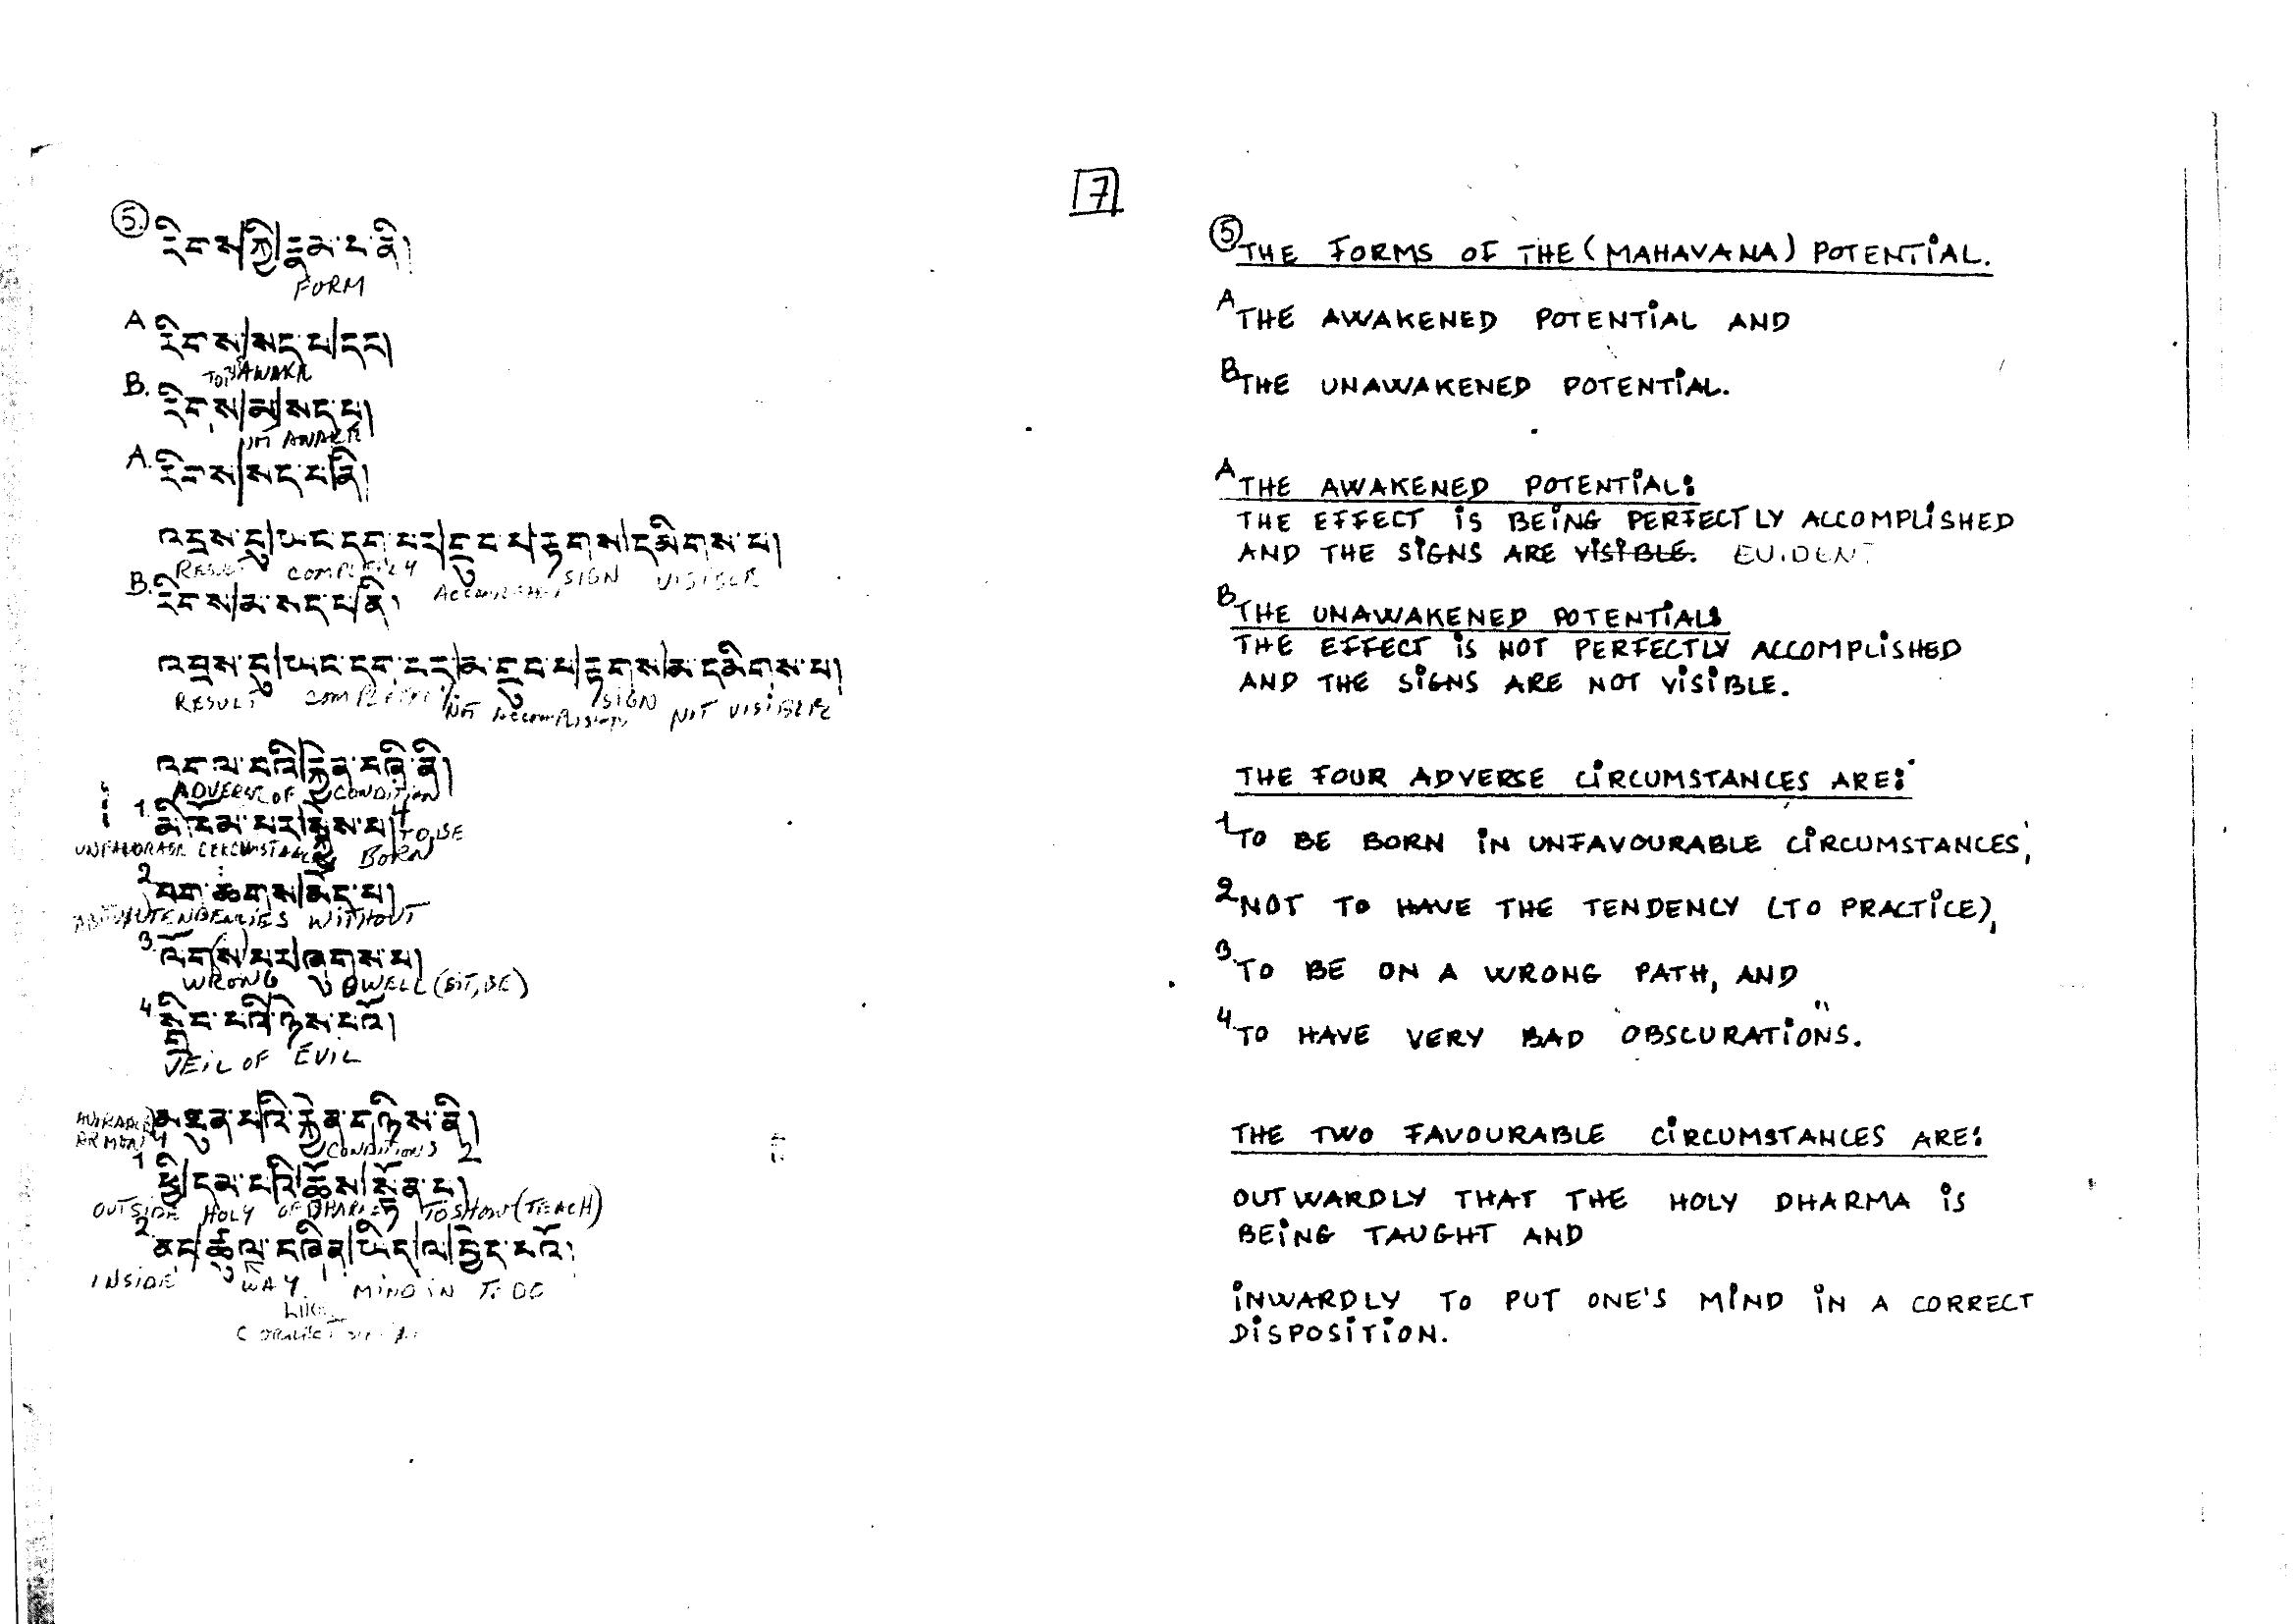 7
5. རིགས|ཀྱི|རྣམ་པ་ནི།
FORM
A རིགས|སད་པ|དང།
AWAKE
B. རིགས|མ|སད་པ།
UN AWAKE
A. རིགས|སད་པ་ནི།
འབྲས་བུ|ཡང་དག་པར|གྲུབ་པ|རྟགས|དམིགས་པ།
RESULT COMPLETELY ACCOMPLISHED SIGN VISIBLE
B. རིགས|མ་སད་པ|ནི།
འབྲས་བུ|ཡང་དག་པར|མ་གྲུབ་པ|རྟགས|མ་དམིགས་པ།
RESULT COMPLETELY NOT ACCOMPLISHED SIGN NOT VISIBLE
འགལ་བའི|རྐྱེན་བཞི་ནི།
ADVERSE OF CONDITION 4
1. མི་ཁོམ་པར|སྐྱེས་པ།
UNFAVORABLE CIRCUMSTANCES TO BE BORN
2 བག་ཆགས|མེད་པ།
TENDENCIES WITHOUT
3. ལོག(ས)པར|ཞུགས་པ།
WRONG DWELL (SIT, BE)
4 སྒྲིབ་པའི་ཉེས་པའོ།
VEIL OF EVIL
མཐུན་པའི་རྐྱེན་གཉིས་ནི།
CONDITIONS 2
1 ཕྱི|དམ་པའི|ཆོས|སྟོན་པ།
OUTSIDE HOLY OF DHARMA TO SHOW (TEACH)
2 ནང|ཚུལ་བཞིན|ཡིད|ལ|བྱེད་པའོ།
INSIDE WAY MIND IN TO DO
LIKE
5 THE FORMS OF THE (MAHAVANA) POTENTIAL.
A THE AWAKENED POTENTIAL AND
B THE UNAWAKENED POTENTIAL.
A THE AWAKENED POTENTIAL:
THE EFFECT IS BEING PERFECTLY ACCOMPLISHED
AND THE SIGNS ARE VISIBLE. EVIDENT
B THE UNAWAKENED POTENTIAL:
THE EFFECT IS NOT PERFECTLY ACCOMPLISHED
AND THE SIGNS ARE NOT VISIBLE.
THE FOUR ADVERSE CIRCUMSTANCES ARE:
1 TO BE BORN IN UNFAVOURABLE CIRCUMSTANCES,
2 NOT TO HAVE THE TENDENCY (TO PRACTICE),
3. TO BE ON A WRONG PATH, AND
4 TO HAVE VERY BAD OBSCURATIONS.
THE TWO FAVOURABLE CIRCUMSTANCES ARE:
OUTWARDLY THAT THE HOLY DHARMA IS
BEING TAUGHT AND
INWARDLY TO PUT ONE'S MIND IN A CORRECT
DISPOSITION.